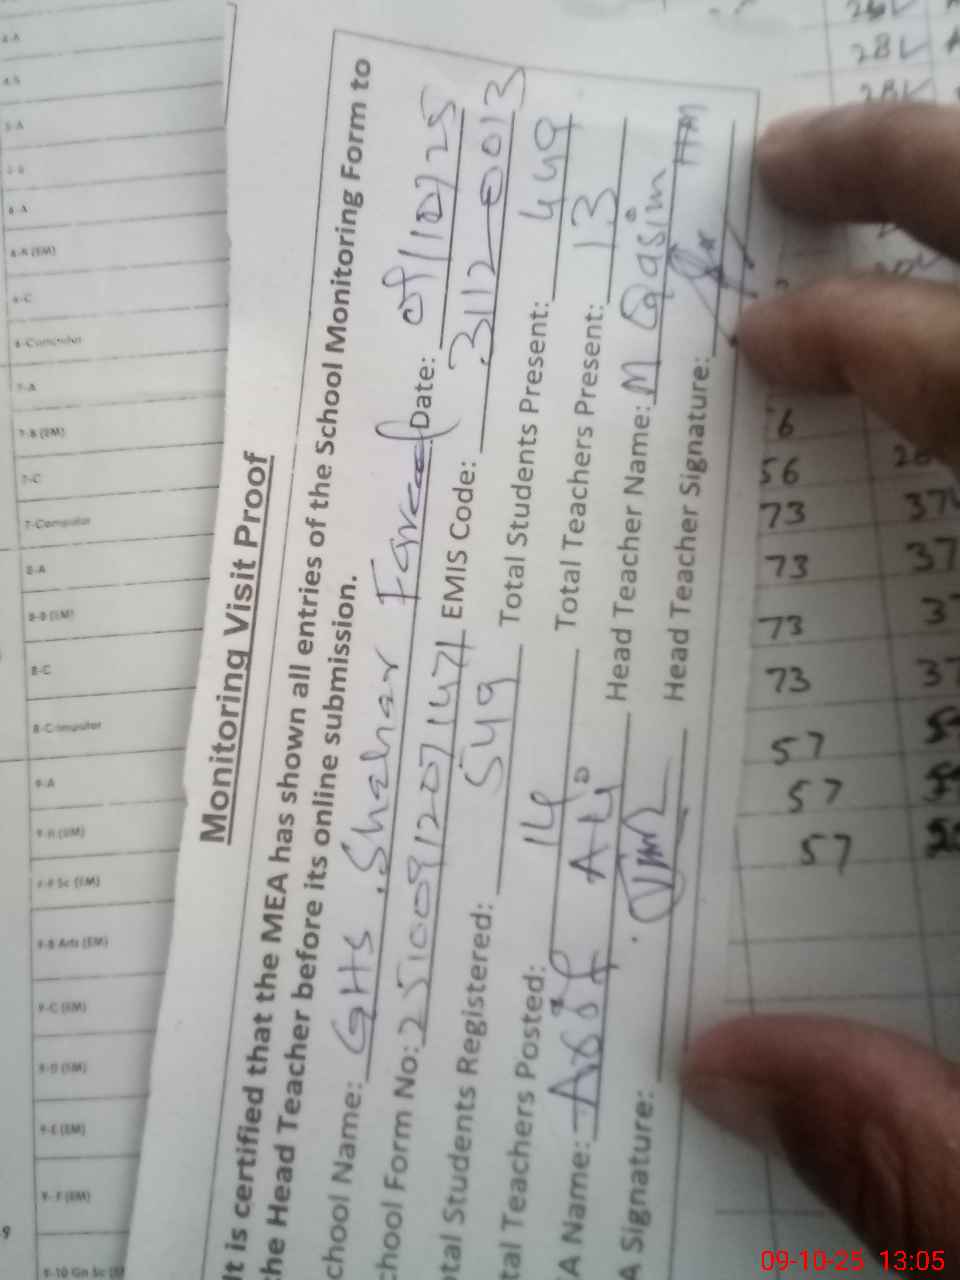 Monitoring Visit Proof
It is certified that the MEA has shown all entries of the School Monitoring Form to
the Head Teacher before its online submission.
chool Name: GHS. Shahar Fareed Date: 09/10/25
chool Form No: 25100912071471 EMIS Code: 31120013
tal Students Registered: 549 Total Students Present: 449
tal Teachers Posted: 14 Total Teachers Present: 13
A Name: Asif Ali Head Teacher Name: M Qasim
A Signature: Head Teacher Signature: HM
6-A
6-A (EM)
6-C
6-Computer
7-A
7-B (EM)
7-C
7-Computer
8-A
8-B (EM)
8-C
8-Computer
9-A
9-B (EM)
9-B Arts (EM)
9-C (EM)
9-D (EM)
9-E (EM)
9-F (EM)
28
28
56
73 37
73 37
73
73 37
57
57
57
09-10-25 13:05